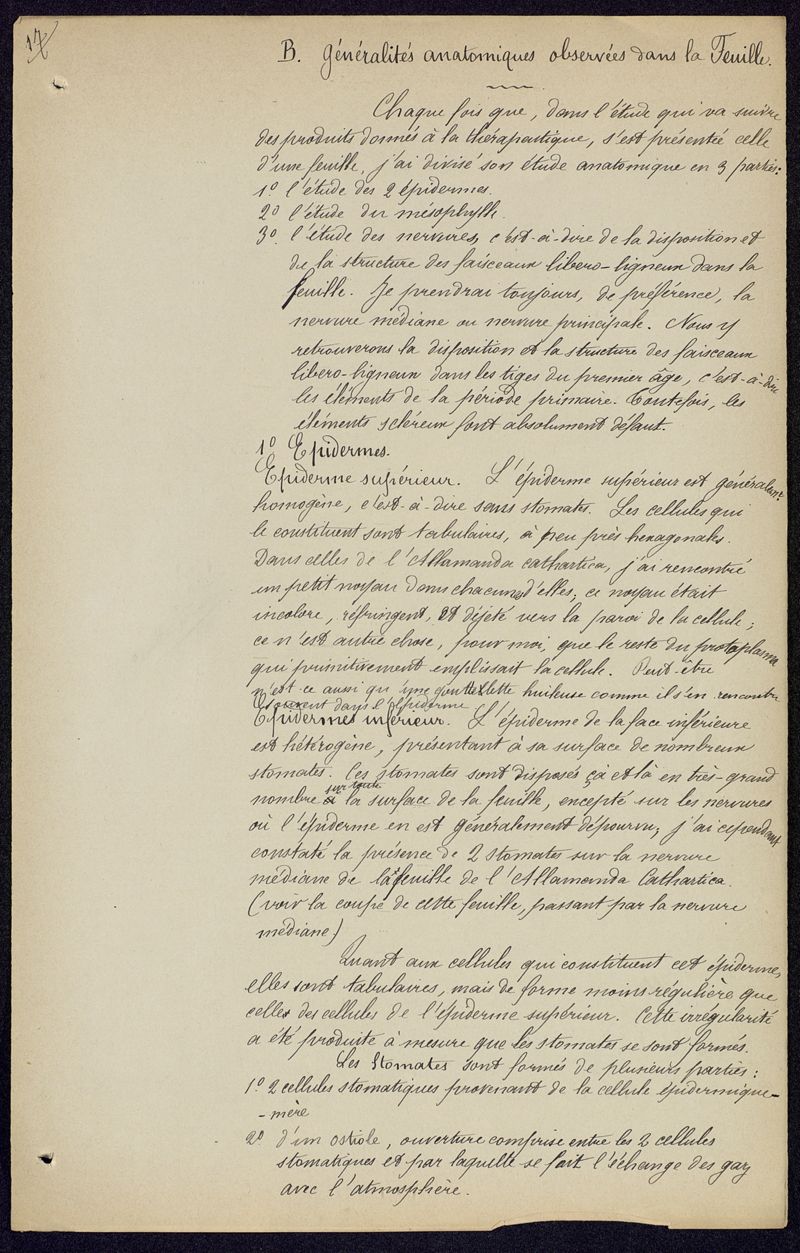 17
B. Généralités anatomiques observées dans la Feuille.
Chaque fois que, dans l'étude qui va suivre
des produits donnés à la thérapeutique, s'est présentée celle
d'une feuille, j'ai divisé son étude anatomique en 3 parties:
1º l'étude des 2 épidermes.
2º l'étude du mésophylle.
3º l'étude des nervures, c'est-à-dire de la disposition et
de la structure des faisceaux libero-ligneux dans la
feuille. Je prendrai toujours, de préférence, la
nervure médiane ou nervure principale. Nous y
retrouverons la disposition et la structure des faisceaux
libero-ligneux dans les tiges du premier âge, c'est-à-dire
les éléments de la période primaire. Toutefois, les
éléments scléreux font absolument défaut.
1º Epidermes.
Epiderme supérieur. L'épiderme supérieur est généralemt
homogène, c'est-à-dire sans stomates. Les cellules qui
le constituent sont tabulaires, à peu près hexagonales.
Dans celles de l'Allamanda cathartica, j'ai rencontré
un petit noyau dans chacune d'elles; ce noyau était
incolore, réfringent, et déjeté vers la paroi de la cellule;
ce n'est autre chose, pour moi, que le reste du protoplasma
qui primitivement emplissait la cellule. Peut-être
n'est-ce aussi qu'une gouttelette huileuse comme il s'en rencontre
souvent dans l'épiderme
Epidermes inférieur. L'épiderme de la face inférieure
est hétérogène, présentant à sa surface de nombreux
stomates. Ces stomates sont disposés çà et là en très-grand
nombre sur toute la surface de la feuille, excepté sur les nervures
où l'épiderme en est généralement dépourvu; j'ai cependant
constaté la présence de 2 stomates sur la nervure
médiane de la feuille de l'Allamanda Cathartica.
(voir la coupe de cette feuille, passant par la nervure
médiane)
Quant aux cellules qui constituent cet épiderme,
elles sont tabulaires, mais de forme moins régulière que
celles des cellules de l'épiderme supérieur. Cette irrégularité
a été produite à mesure que les stomates se sont formés.
Les Stomates sont formés de plusieurs parties:
1º 2 cellules stomatiques provenant de la cellule épidermique-
-mère
2º d'un ostiole, ouverture comprise entre les 2 cellules
stomatiques et par laquelle se fait l'échange des gaz
avec l'atmosphère.